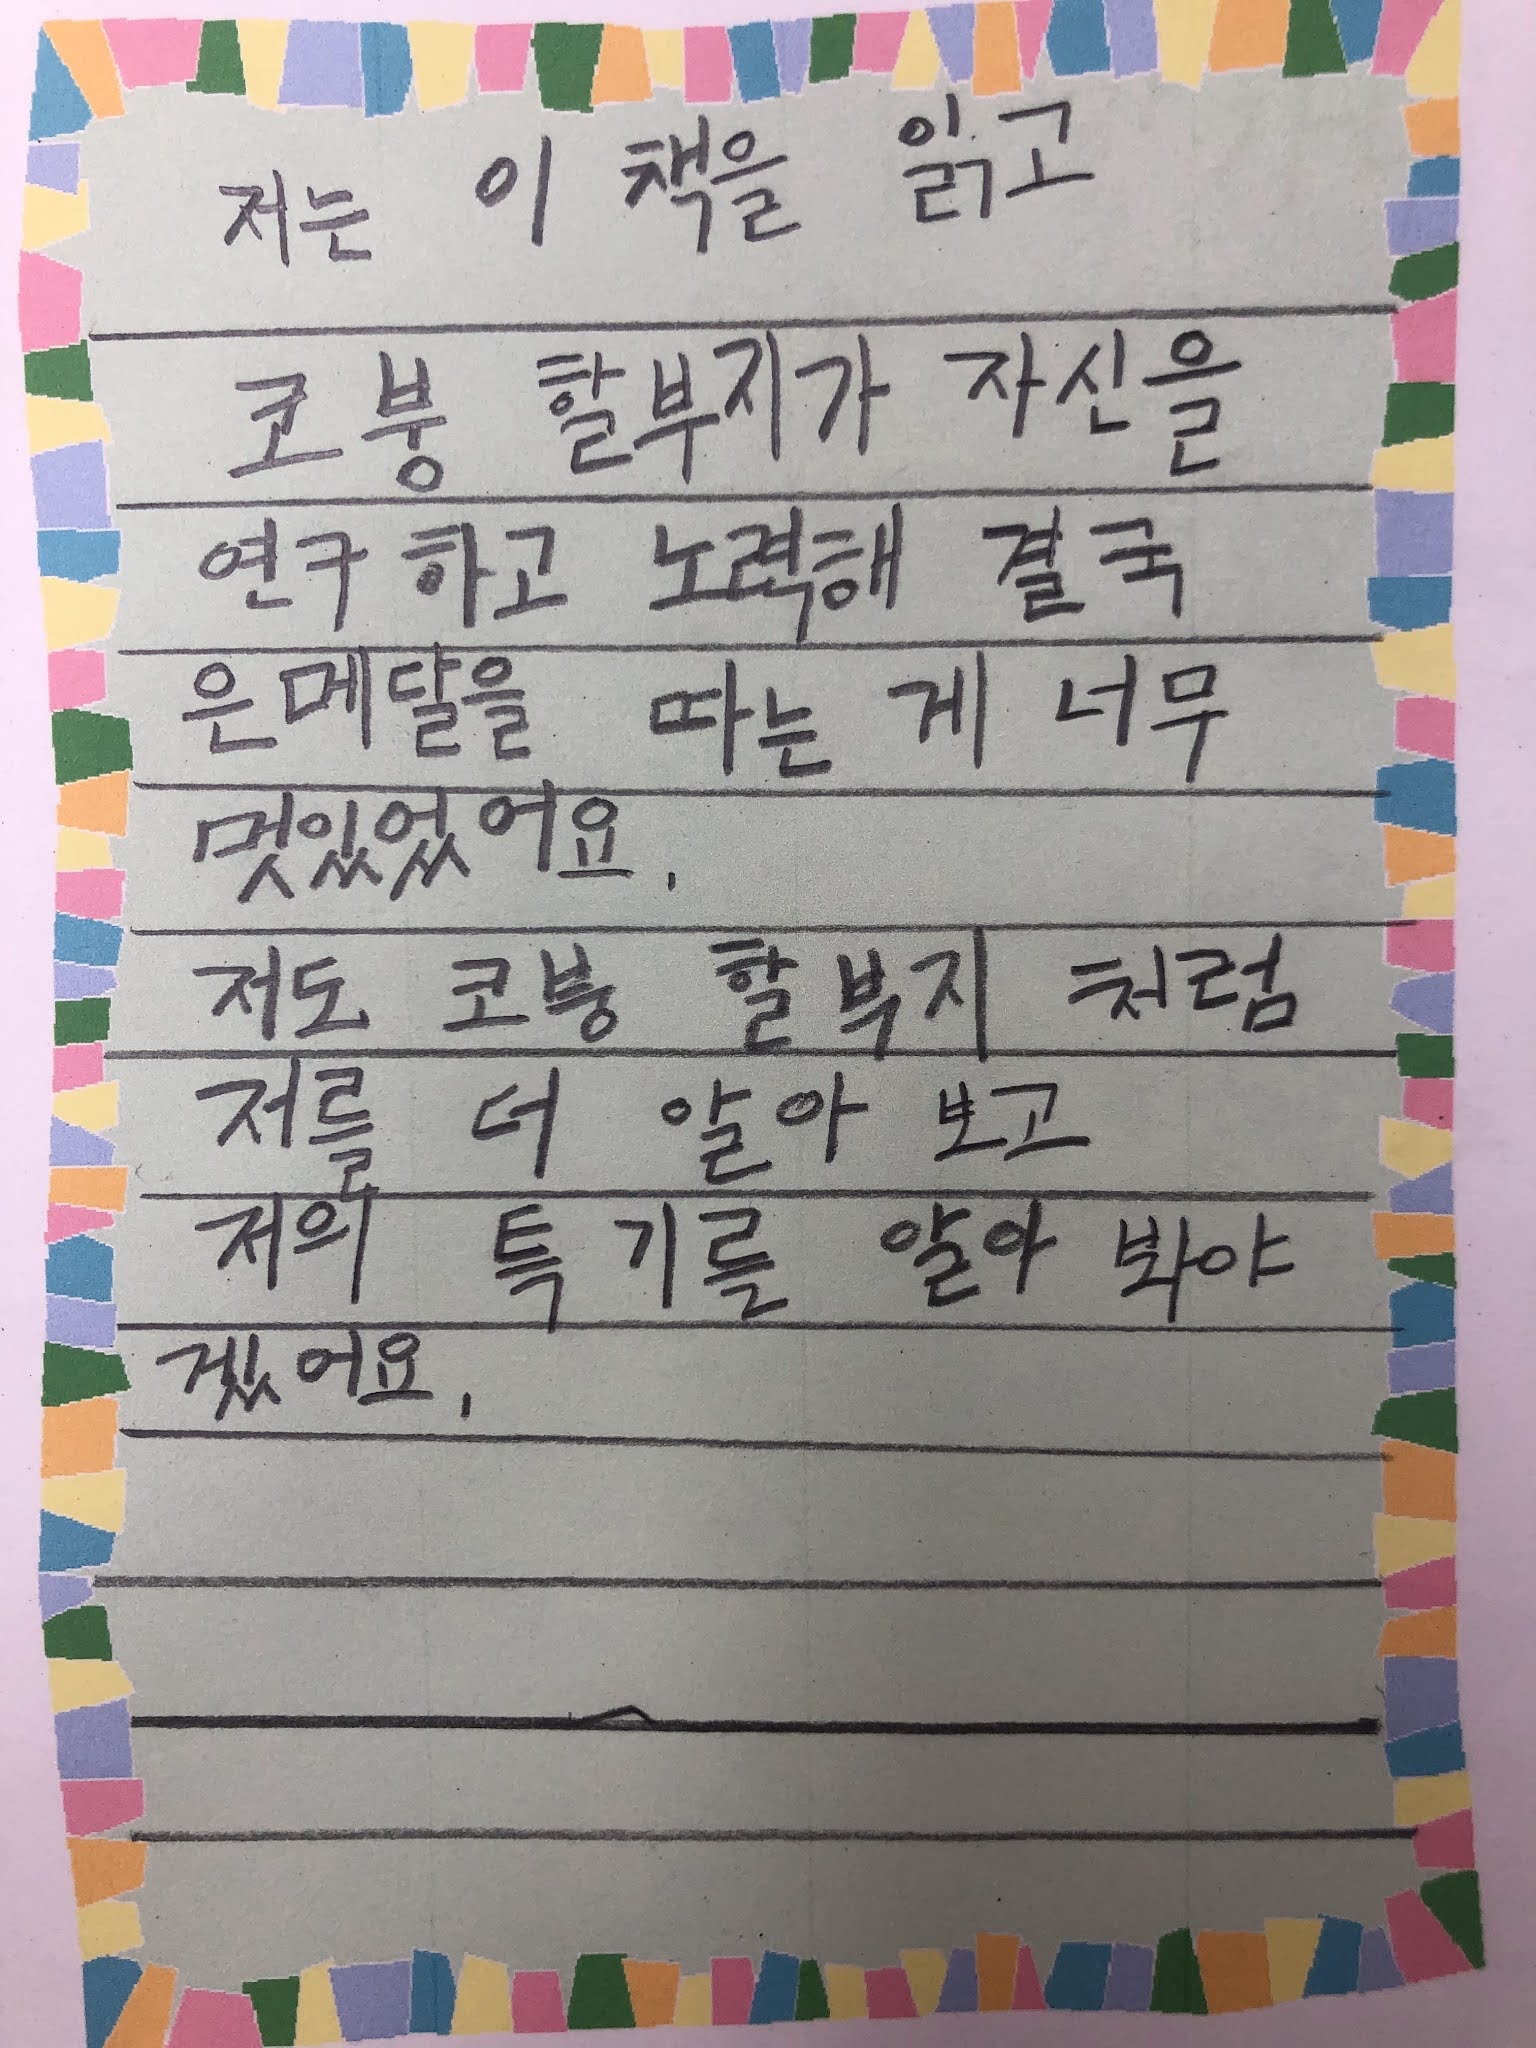 저는 이 책을 읽고
코붕 할부지가 자신을
연구하고 노력해 결국
은메달을 따는 게 너무
멋있었어요.
저도 코붕 할부지 처럼
저를 더 알아 보고
저의 특기를 알아 봐야
겠어요.